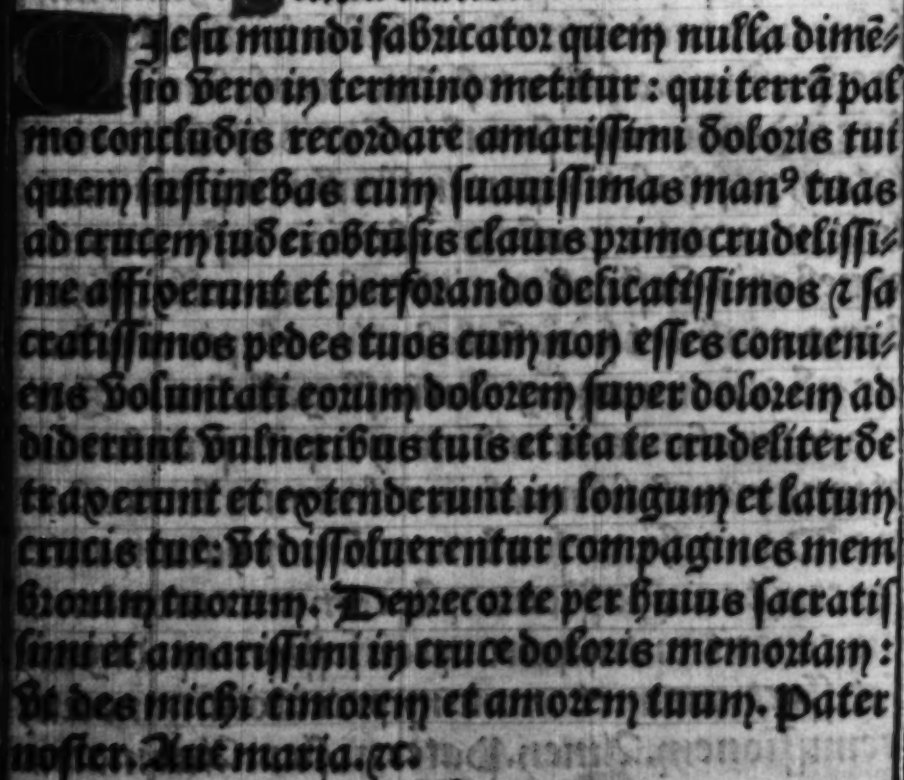 O Jesu mundi fabricator quem nulla dimē⸗
sio vero in termino metitur: qui terrā pal
mo concludis recordare amarissimi doloris tui
quem sustinebas cum suauissimas manꝰ tuas
ad crucem iudei obtusis clauis primo crudelissi⸗
me affixerunt et perforando delicatissimos ⁊ sa
cratissimos pedes tuos cum non esses conueni⸗
ens voluntati eorum dolorem super dolorem ad
diderunt vulneribus tuis et ita te crudeliter de
traxerunt et extenderunt in longum et latum
crucis tue: vt dissoluerentur compagines mem
brorum tuorum. Deprecor te per huius sacratis
simi et amarissimi in cruce doloris memoriam:
vt des michi timorem et amorem tuum. Pater
noster. Aue maria. ⁊c.